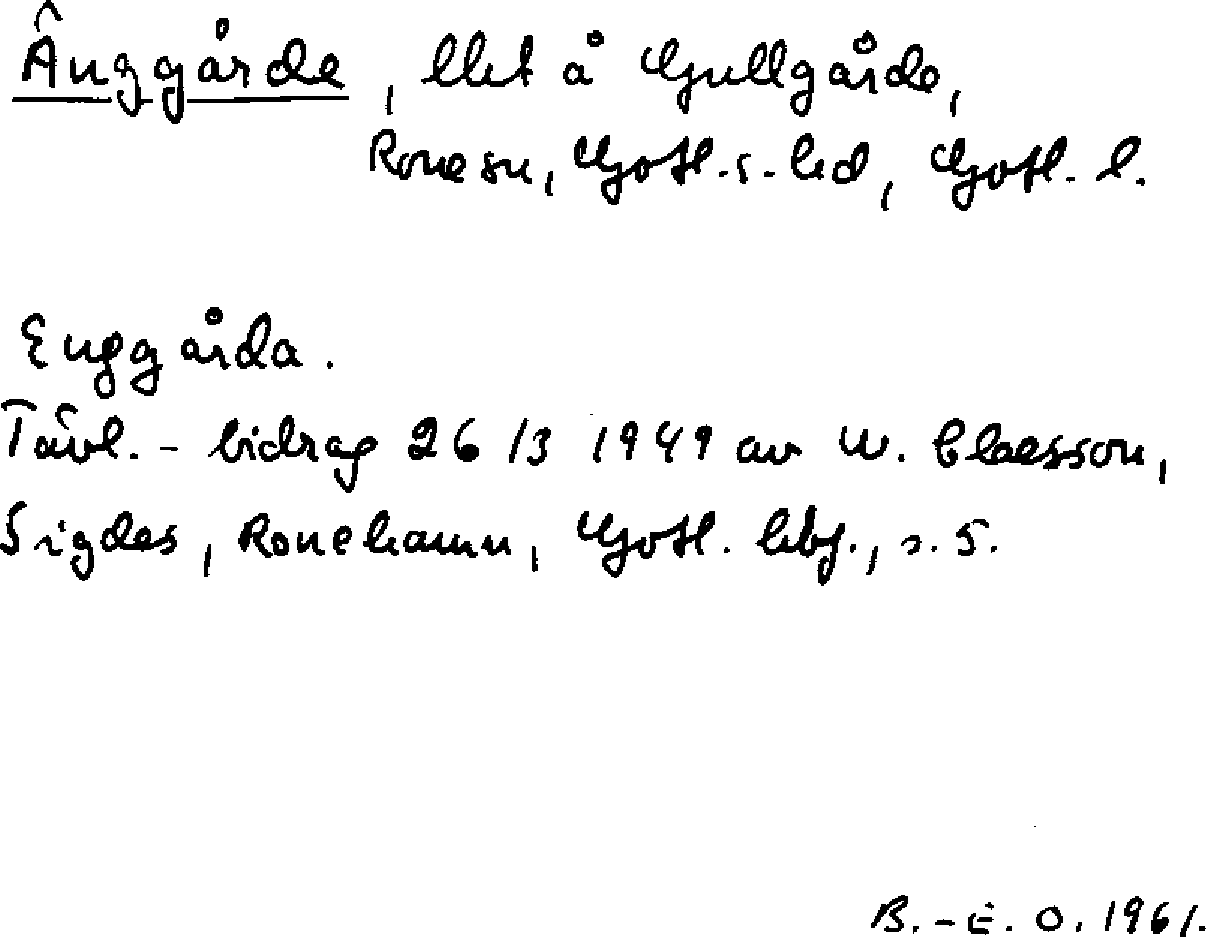 Änggårde, llet å Gullgårde,
Rone sn, Gotl. s. hd, Gotl. l.
Enggårda.
Tävl.-bidrag 26/3 1949 av W. Claesson,
Sigdes, Ronehamn, Gotl. s. 5.
B.-E. O. 1961.